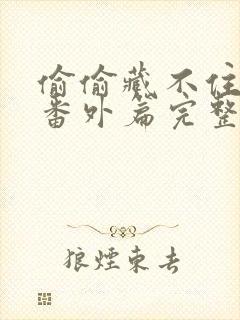 偷偷藏不住
番外篇完整
狼煙東去